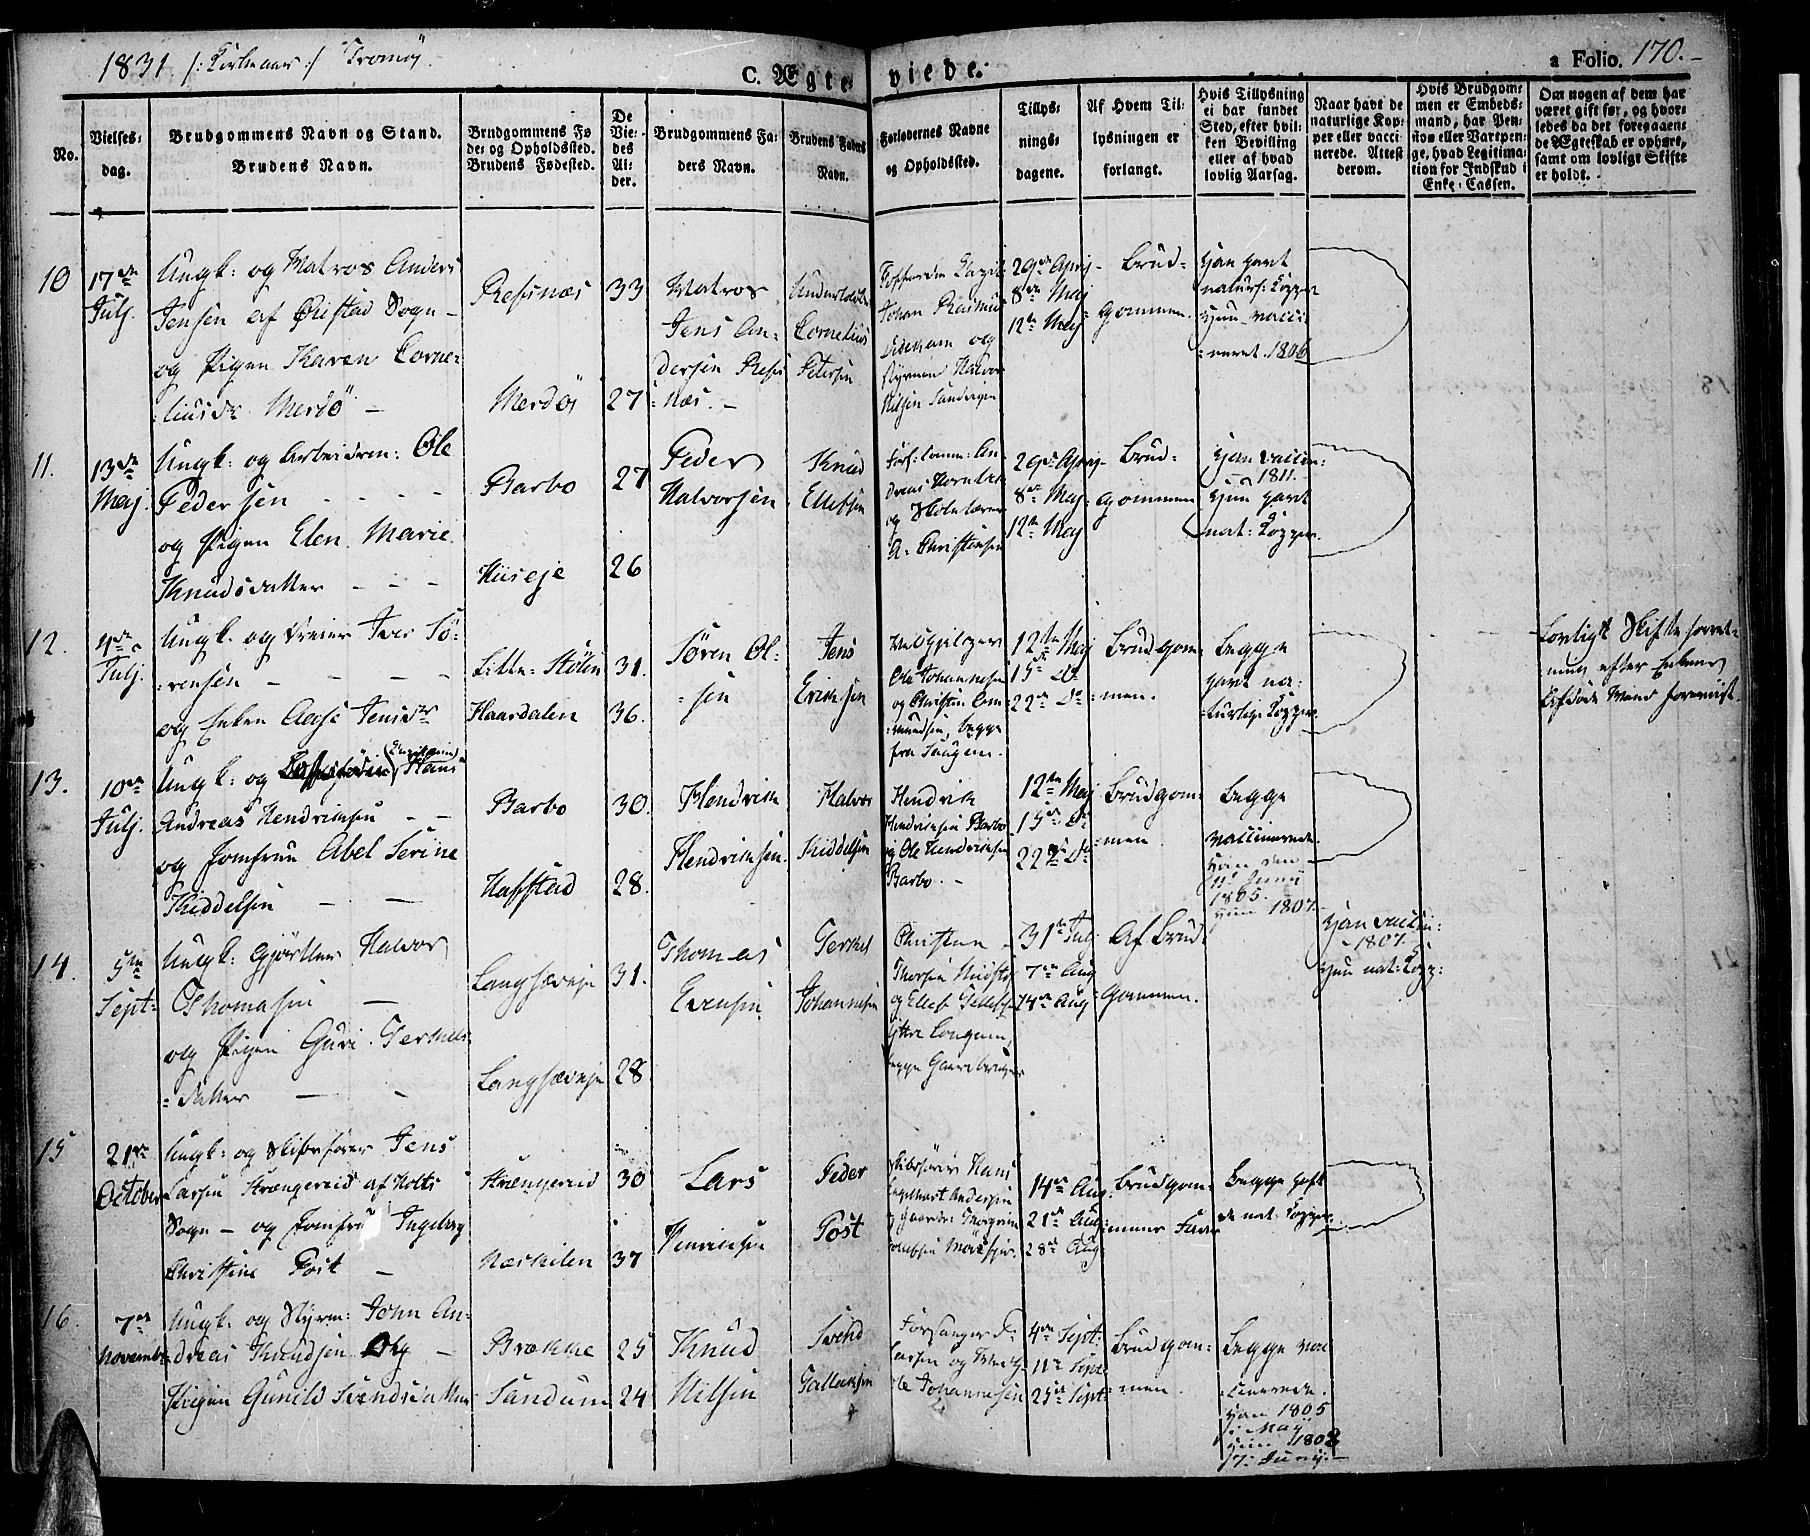 1831 Tromöÿ.
C. Ægteviede.
a Folio. 170.
No.
Vielses-
dag.
Brudgommens Navn og Stand.
Brudens Navn.
Brudgommens Fø
de- og Opholdssted.
Brudens Fødested.
De
Vie-
des
Al-
der.
Brudgommens Fa-
ders Navn.
Brudens Faders
Navn.
Forlovernes Navne
og Opholdssted.
Tillys-
nings-
dagene.
Af Hvem Til-
lysningen er
forlangt.
Hvis Tillysning
ei har fundet
Sted, efter hvil-
ken Bevilling
eller af hvad
lovlig Aarsag.
Naar havt de
naturlige Kop-
per eller vacci-
nerede. Attest
derom.
Hvis Brudgom-
men er Embeds-
mand, har Pen-
sion eller Vartpen-
ge, hvad Legitima-
tion for Indskud i
Enke-Cassen.
Om nogen af dem har
været gift før, og hvor-
ledes da det foregaaen-
de Ægteskab er ophørt,
samt om lovligt Skifte
er holdt.
10
17de
Julj.
Ungk: og Matros Anders
Jensen af Øiestad Sogn -
og Pigen Karen Corne-
liusdr Merdö -
Refsnæs
Merdöÿ
33
27
Matros
Jens An-
dersen Refs
næs. -
Cornelius
Petersen
Johan Rasmus
og
Styrmand Halvor
Nilsen
29de April
8de Maj
12te Maj
Brud-
gommen.
Han havt
naturl: Kopper
Hun vacci-
neret. 1806
11.
13de
Maj.
Ungk: og Arbeidsm: Ole
Pedersen - - - -
og Pigen Elen Marie
Knudsdatter - - -
Barbo
Huseje
27
26
Peder
Halvorsen
Knud
Ellefsen
An
dreas
og Skolelærer
A. Christensen
29de April
8de Maj
12te Maj
Brud-
gommen
Han vaccin:
1811.
Hun havt
nat: Kopper.
12.
4de
Julj.
Ungk. og Dreier Jens Sö-
rensen - - - -
og Enken Aase Jensdr
Lille-Stölen
Haardalen
31.
36.
Sören Ol-
sen
Jens
Eriksen
Ole Johannesen
og Christen
begge
fra Saugene.
12te Maj
15de Do
22de Do
Brudgom-
men.
Begge
havt na-
turlige Kopper.
Lovligt Skifteforret-
ning efter Enkens
13.
10de
Julj.
Ungk: og Hans
Andreas Hendriksen - -
og Jomfrue Abel Serine
Kiddelsen - -
Barbo
Hafstad
30.
28.
Hendrik
Hendriksen.
Halvor
Kiddelsen
Hendrik
Hendriksen Barbo
og Ole Hendriksen
Barbo. -
12te Maj
15de Do
22de Do
Brudgom-
men
Begge
vaccinerede
Han den
11 Junii
1805.
Hun 1807.
14.
5te
Sept:
Ungk: Gjørtler Halvor
Thomasen -
og Pigen Guri Terkels-
datter - -
Langsæveje
Langsæveje
31.
28.
Thomas
Evensen
Terkel
Johannesen
Christen
og Ellef
Longum,
begge Gaardbruger
31te Julj
7de Aug
14de Aug
Af Brud-
gommen.
Han vacci:
1807
Hun nat: Kopp:
15
21de
October
Ungk: og Skibsfører Jens
Larsen Strængereid af Holts
Sogn - og Jomfrue Ingeborg
Christine Post -
Strængereid
Næskilen
30
37
Lars
Henriksen
Peder
Post
Skibsfører Hans
Engelhart Andersen
14de Aug
21de Aug
28de Aug:
Brudgom-
mens Fader
Begge haft
de nat: Kopper.
16.
7de
November
Ungk: og Styrm: John An-
dreas Knudsen Og -
Pigen Gunild Svendsdr
Brække
Sandum
25
24
Knud
Nilsen
Svend
Tallaksen
Forsanger
Larsen og
Ole Johannesen
4de Sept:
11te Sept
25de Sept
Brudgom-
men.
Begge vac-
cinerede.
Han 1805
i Maÿ
Hun 1808
17 Junij. -